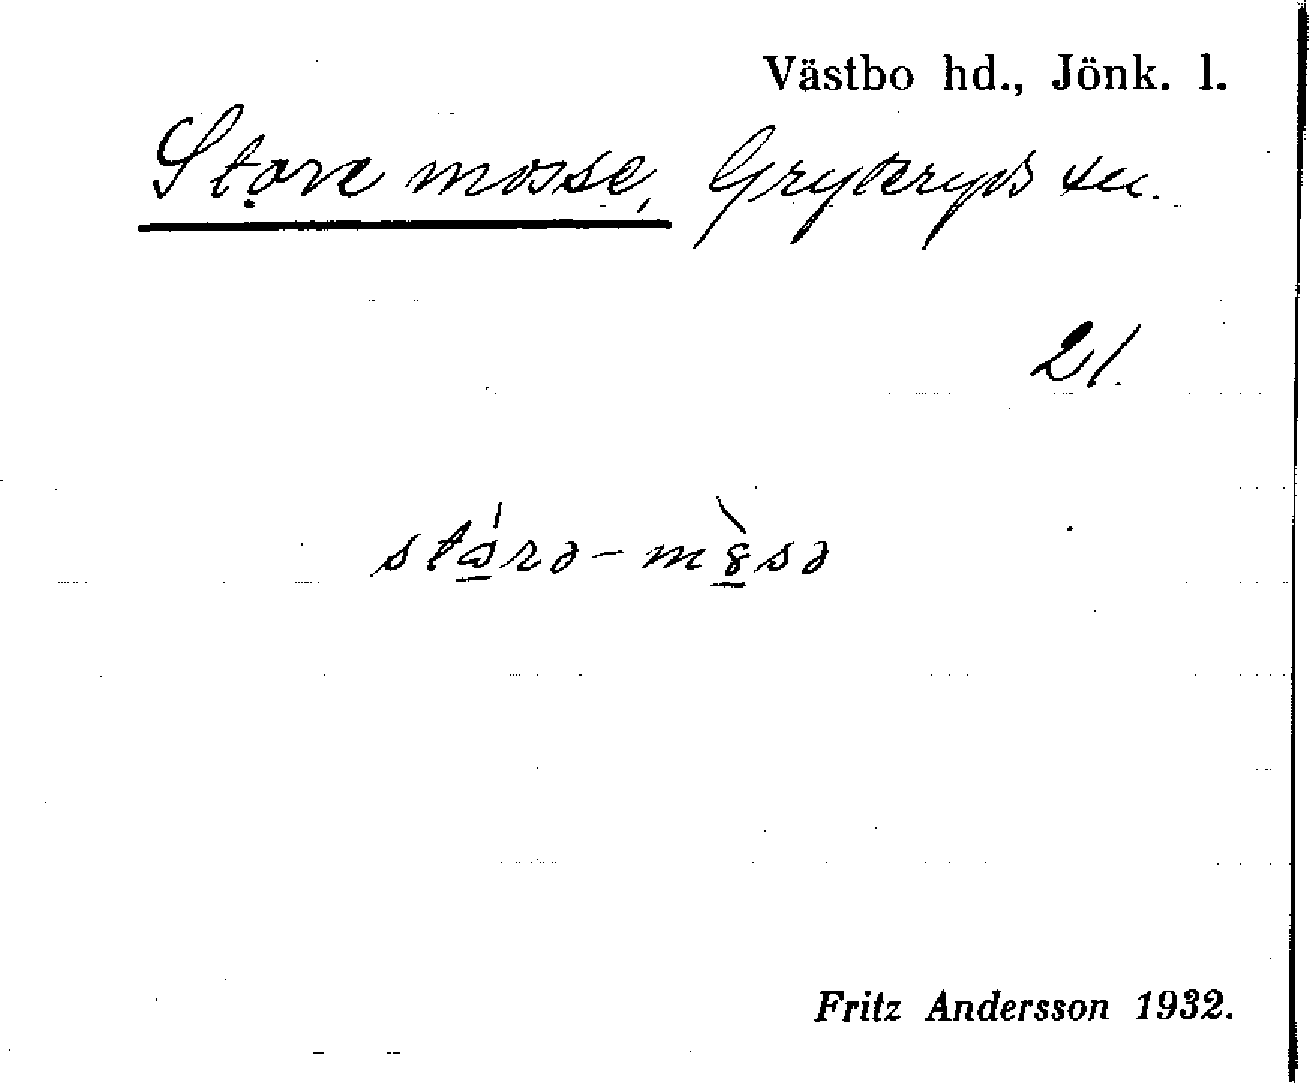 Västbo hd., Jönk. l.
Store mosse, Gryteryds sn.
21.
Fritz Andersson 1932.